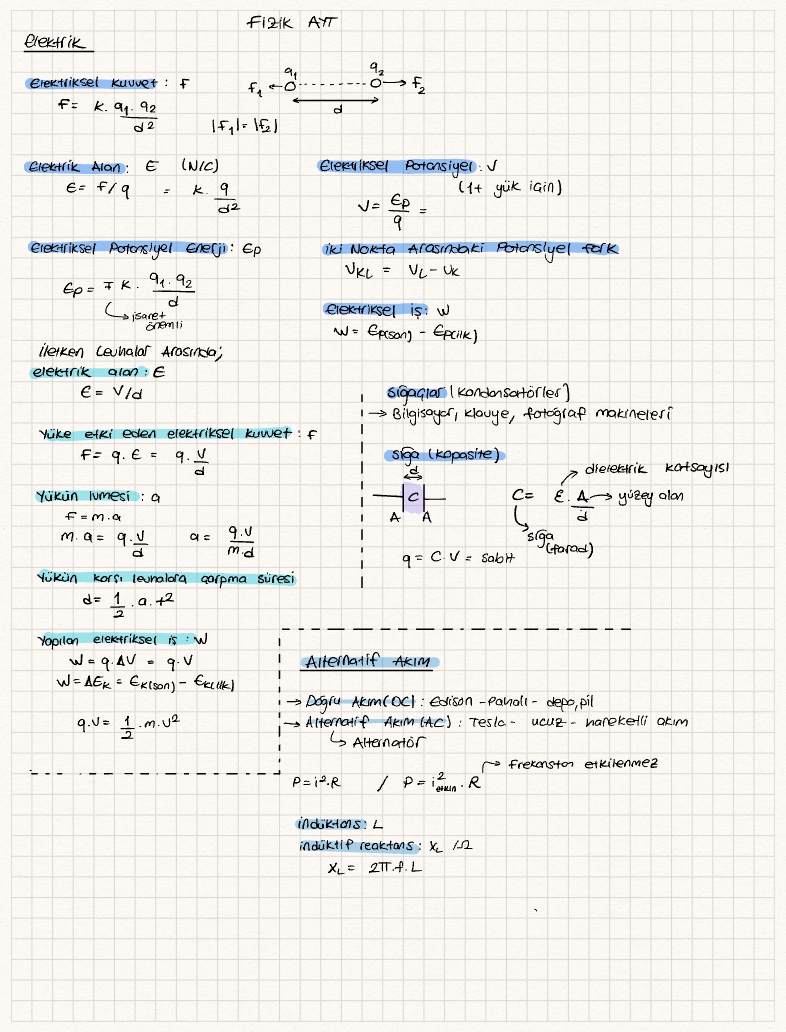 Fizik AYT
Elektrik
Elektriksel Kuvvet : F
F = k. q1. q2 / d2
f1 q1 q2 f2
d
|f1| = |f2|
Elektrik Alan : E (N/C)
E = F/q = k. q / d2
Elektriksel Potansiyel : V
(1+ yük için)
V = Ep / q =
Elektriksel Potansiyel Enerji : Ep
Ep = ∓ k. q1. q2 / d
işaret önemli
iki Nokta Arasındaki Potansiyel fark
VKL = VL - VK
Elektriksel iş : W
W = Ep(son) - Ep(ilk)
İletken Levhalar Arasında;
elektrik alan : E
E = V/d
Yüke etki eden elektriksel kuvvet : F
F = q. E = q. V / d
Yükün ivmesi : a
F = m.a
m. a = q. V / d a = q.V / m.d
Yükün karşı levhalara çarpma süresi
d = 1/2 . a. t2
Yapılan elektriksel iş : W
W = q. ΔV = q. V
W = ΔEK = EK(son) - EK(ilk)
q.V = 1/2 . m. v2
Sığaçlar (Kondansatörler)
→ Bilgisayar, klavye, fotoğraf makineleri
sığa (kapasite)
d
C
A A
C = ε. A / d
→ dielektrik katsayısı
→ yüzey alan
sığa (farad)
q = C. V = sabit
Alternatif Akım
→ Doğru Akım (DC) : Edison - Pahalı - depo, pil
→ Alternatif Akım (AC) : Tesla - ucuz - hareketli akım
↳ Alternatör
P = i2. R / P = i2etkin . R
→ frekanstan etkilenmez
indüktans : L
indüktif reaktans : XL /Ω
XL = 2π. f. L